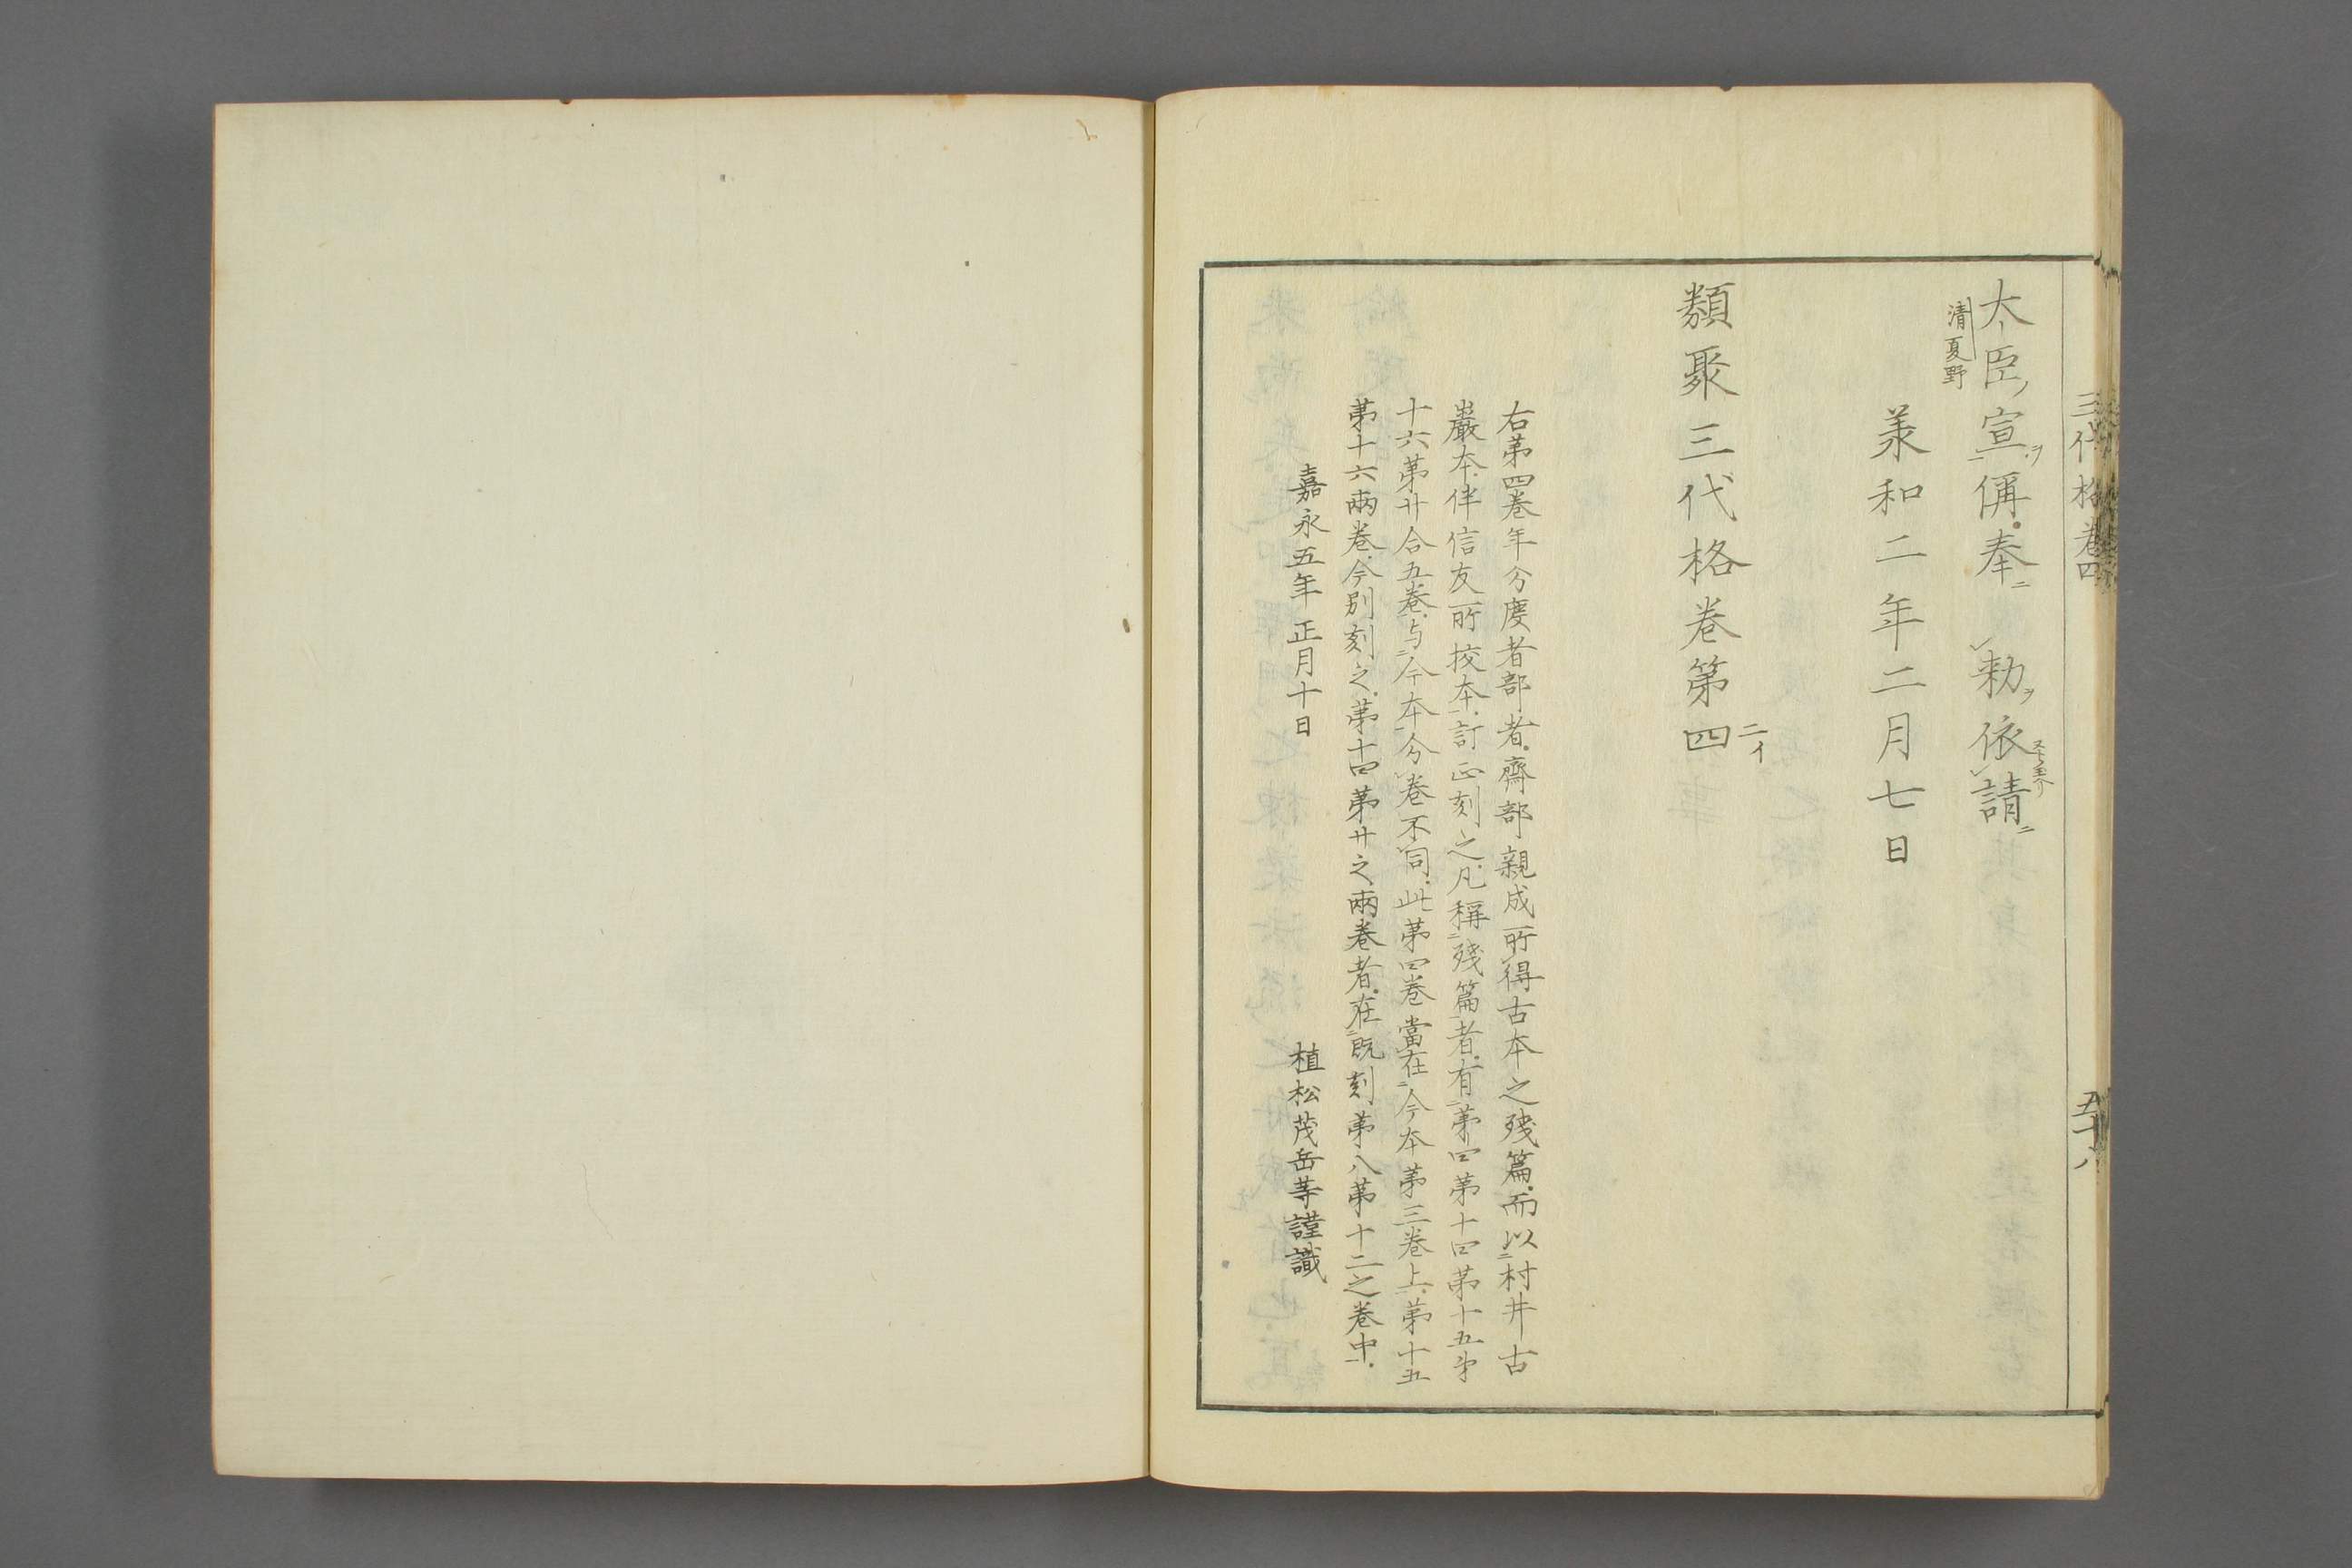 三代格卷四
五十八
太臣宣偁奉　勅依請
清夏野
美和二年二月七日
類聚三代格卷第四
二イ
右第四卷年分度者部者齊部親成所得古本之殘篇而以村井古
巖本伴信友所挍本訂正刻之凡稱殘篇者有第四第十四第十五第
十六第廿合五卷与今本分卷不同此第四卷當在今本第三卷上第十五
第十六兩卷今別刻之第十四第廿之兩卷者在既刻第八第十二之卷中
嘉永五年正月十日
植松茂岳等謹識